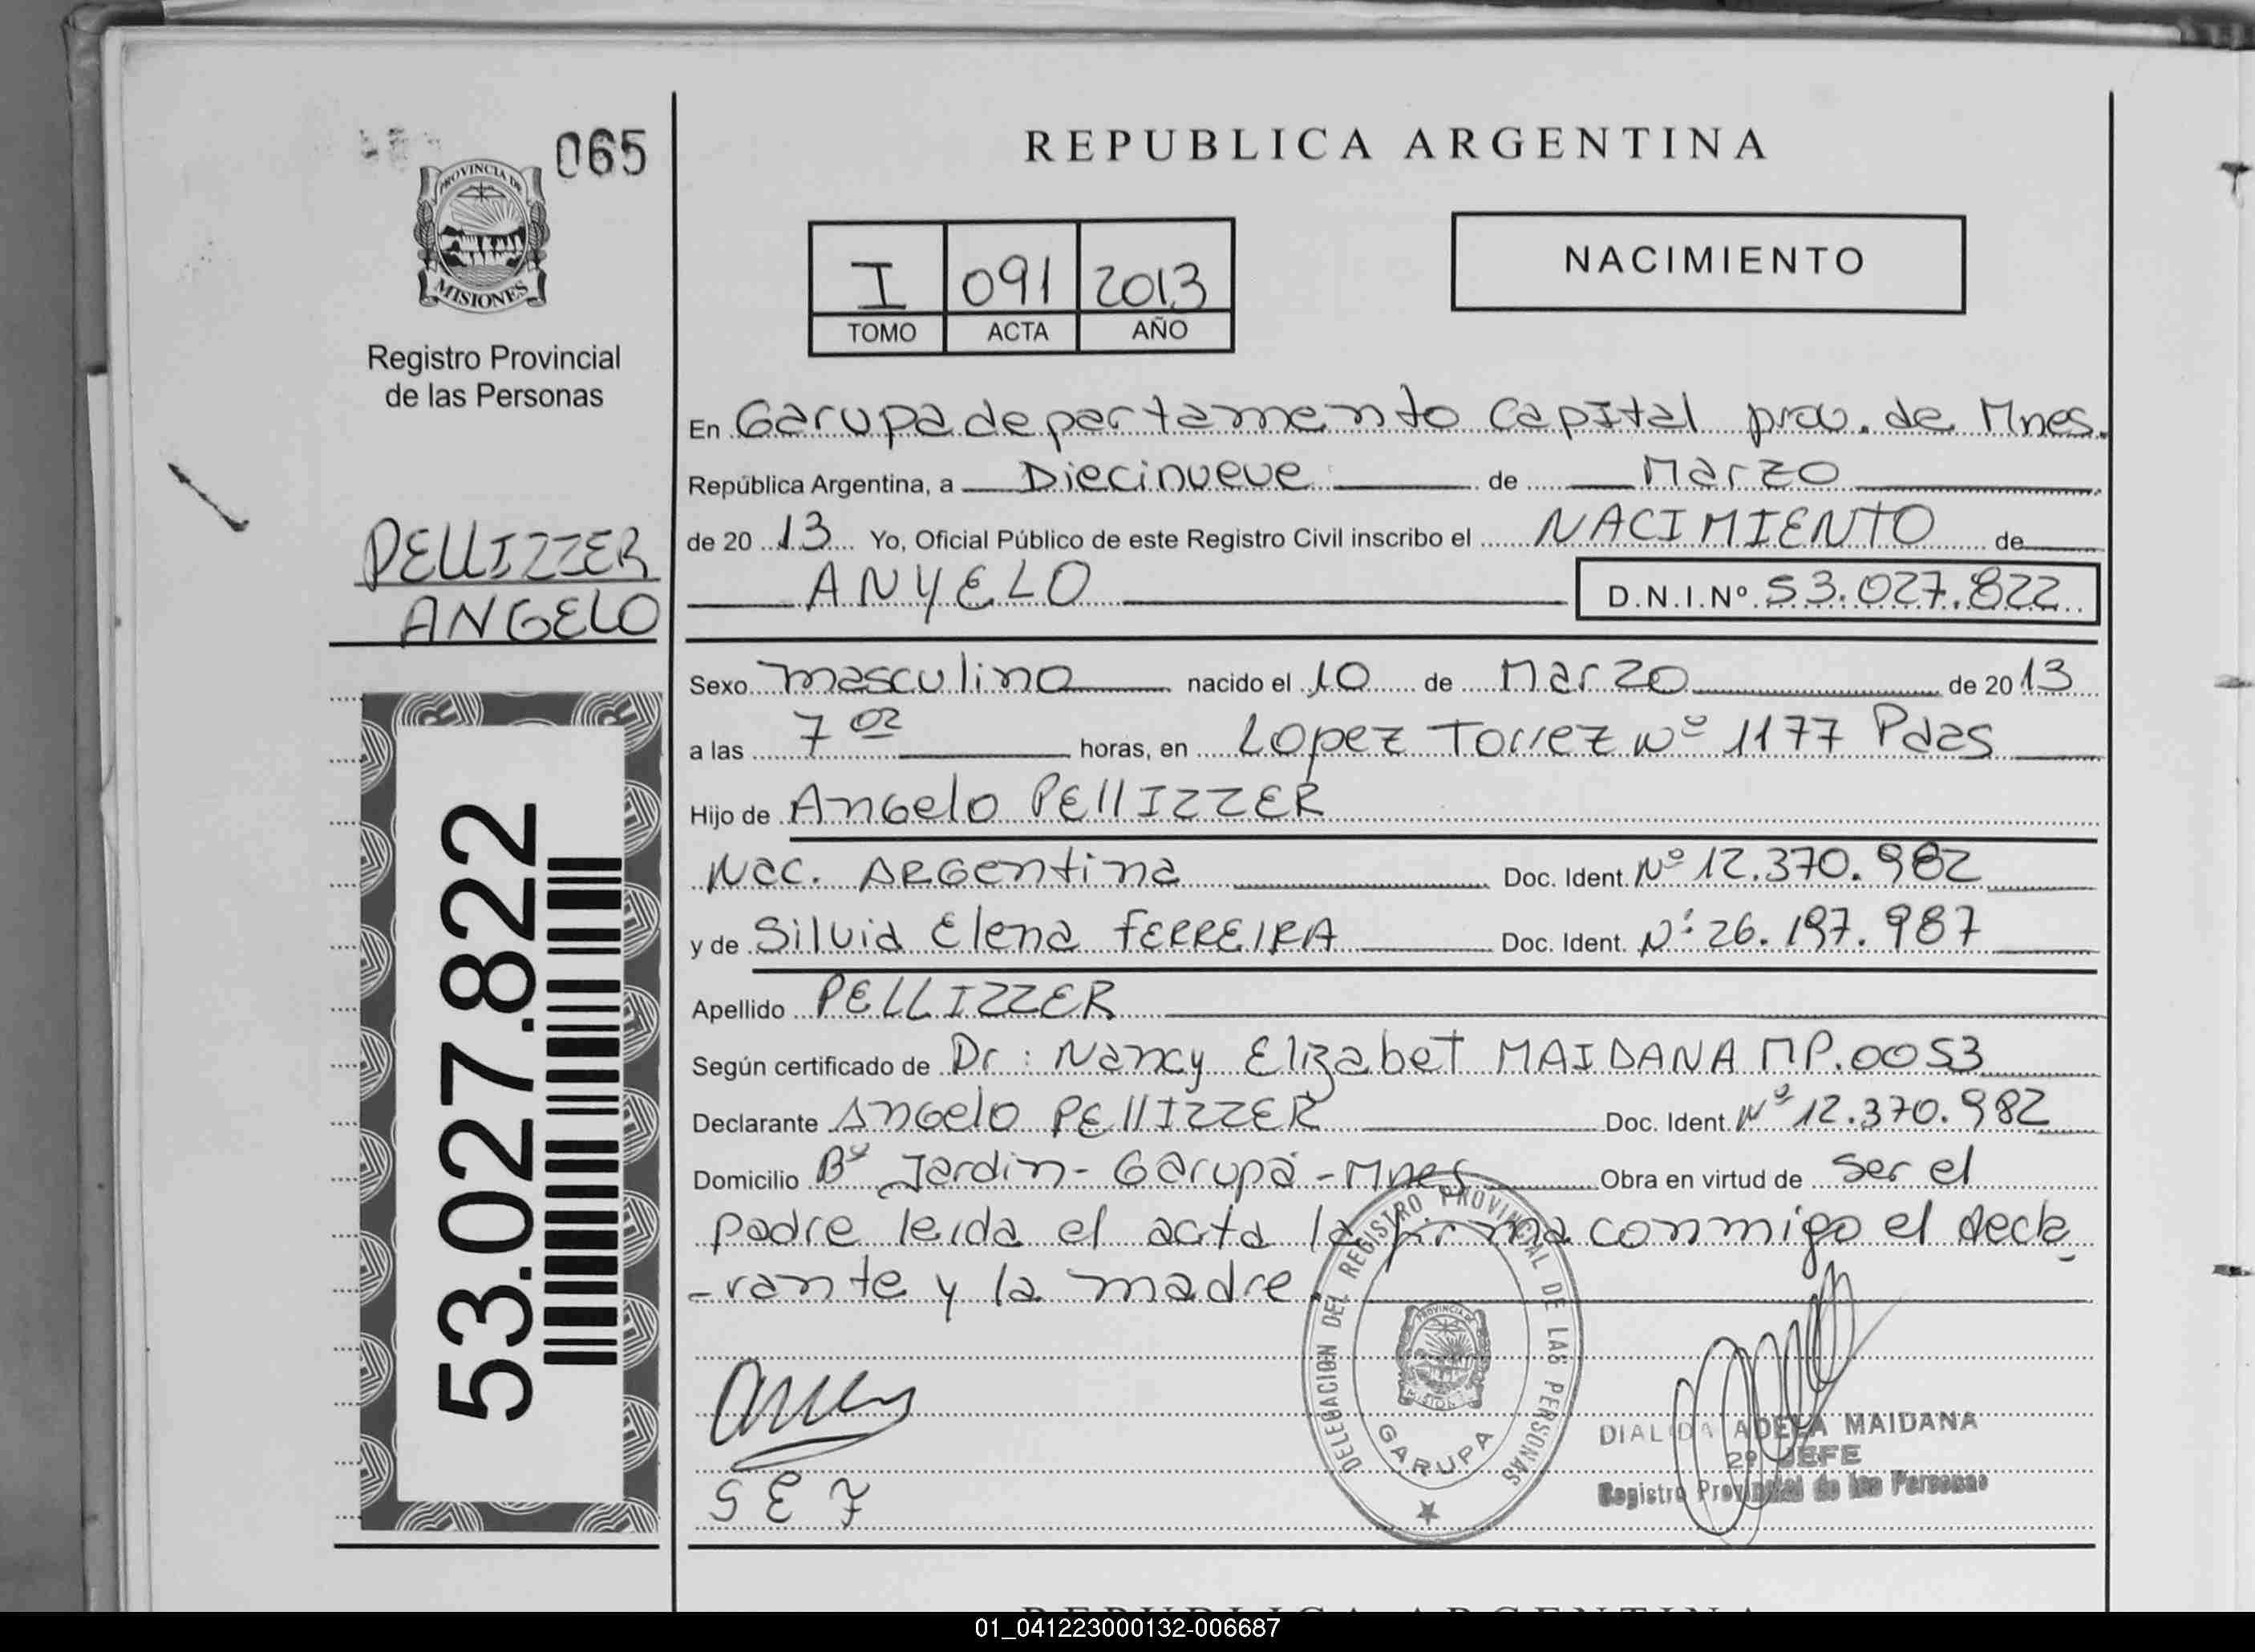 065
PROVINCIA DE
MISIONES
Registro Provincial
de las Personas
PELLIZZER
ANGELO
53.027.822
REPUBLICA ARGENTINA
I 091 2013
TOMO ACTA AÑO
NACIMIENTO
En Garupa departamento Capital prov. de Mnes.
República Argentina, a Diecinueve de Marzo
de 20 13 Yo, Oficial Público de este Registro Civil inscribo el NACIMIENTO de
ANYELO D.N.I.Nº 53.027.822
Sexo masculino nacido el 10 de Marzo de 20 13
a las 7 02 horas, en Lopez Torrez Nº 1177 Pdas
Hijo de Angelo PEllIZZER
Nac. ARGentina Doc. Ident. Nº 12.370.982
y de Silvia Elena FERREIRA Doc. Ident. Nº 26.197.987
Apellido PELLIZZER
Según certificado de Dr: Nancy Elizabet MAIDANA MP.0053
Declarante Angelo PEllIZZER Doc. Ident. Nº 12.370.982
Domicilio Bº Jardin - Garupá - Mnes Obra en virtud de ser el
padre leida el acta la firma conmigo el decla
-rante y la madre.
DELEGACION DEL REGISTRO PROVINCIAL DE LAS PERSONAS
GARUPA
DIALIDA ADELA MAIDANA
2º JEFE
Registro Provincial de las Personas
REPUBLICA ARGENTINA
01_041223000132-006687